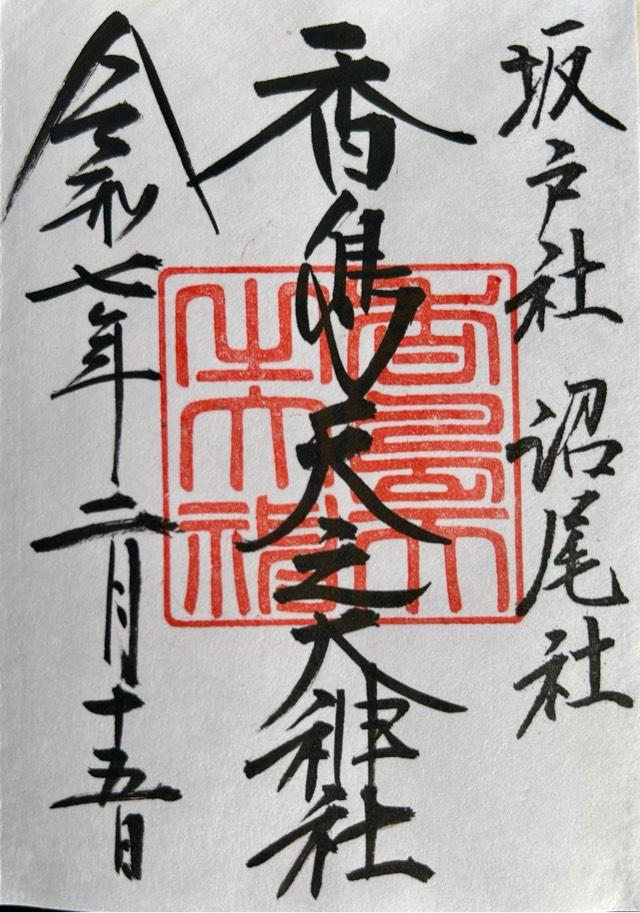 坂戸社 沼尾社
香島天之大神社
令和七年二月十五日
香島天
之大神